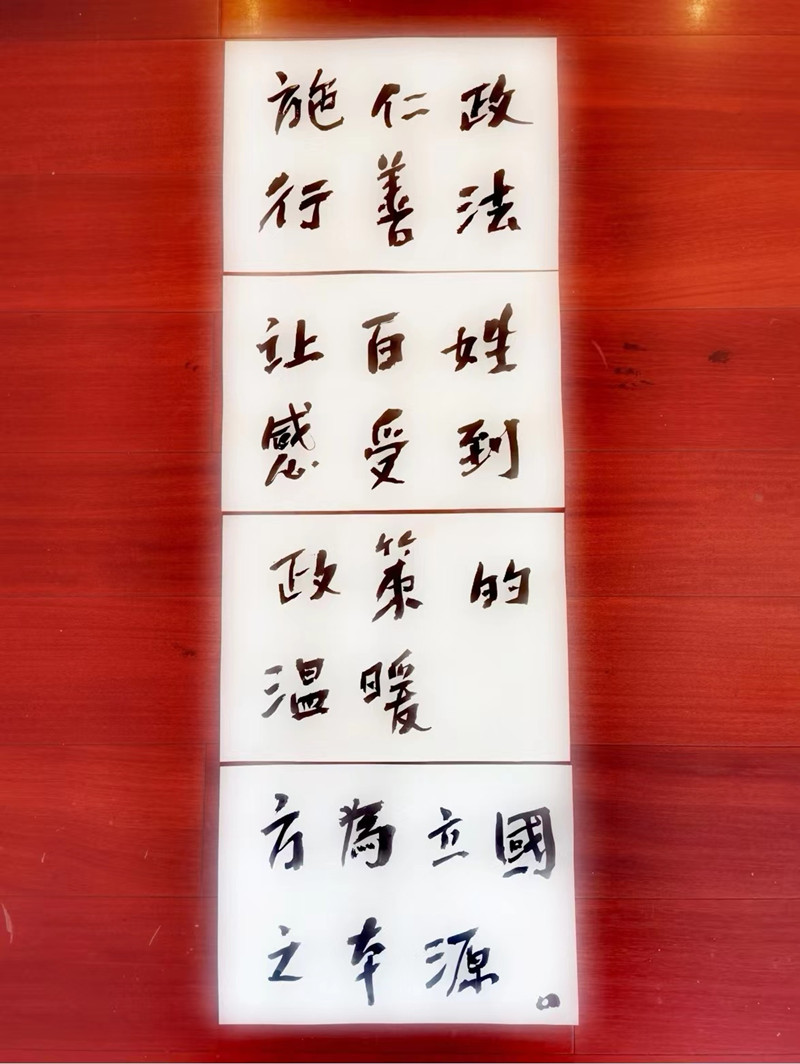 施仁政
行善法
让百姓
感受到
政策的
温暖
方為立國
之本源